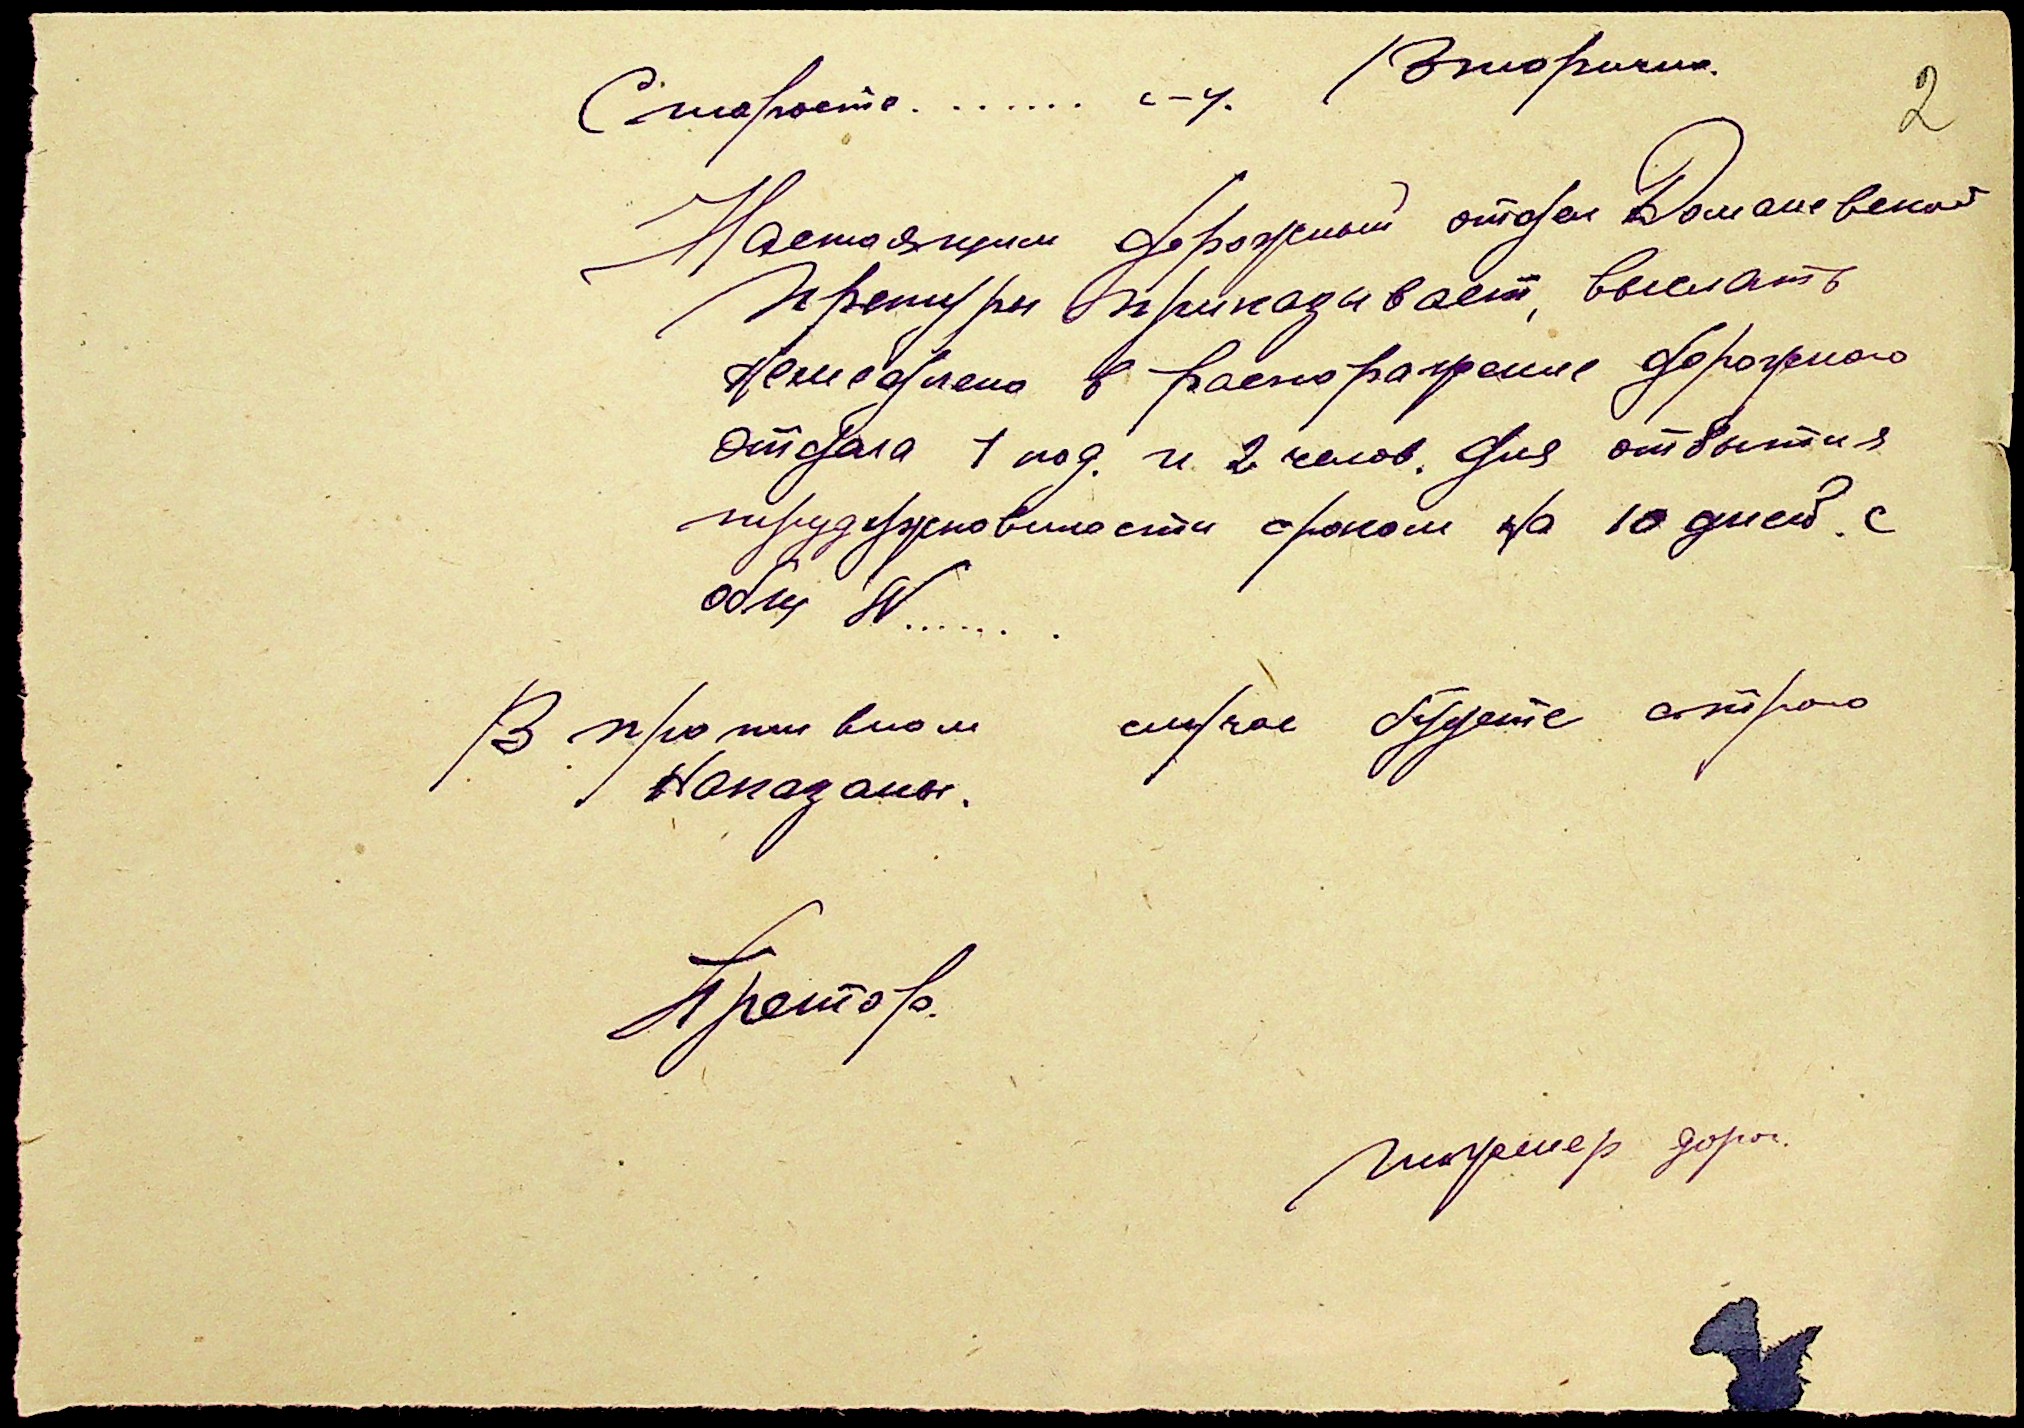 Вторично.
2
Старосте. ...... с-у.
Настоящим дорожный отдел Доманевской
претуры приказывает, выслать
немедлено в распоражение дорожного
отдела 1 под. и 2 челов. для отбытия
трудужповиности сроком на 10 дней. с
общ N.......
В противном случае будете строго
наказаны.
Претор.
инженер дорог.